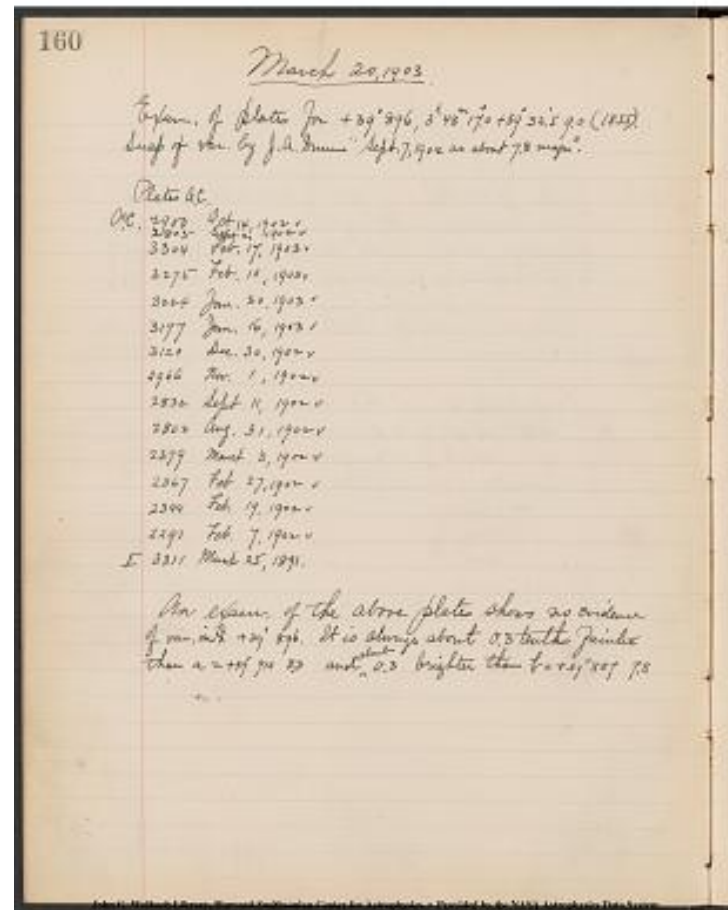 160
March 20, 1903
Exam. of plates for +39° 896, 3h 48m 17s.0 +39° 32'.5 9.0 (1855).
Susp of var. by J.A. Sept. 7, 1902 as about 7.8 magn.
Plates AC.
AC. 2900 Oct 14, 1902 v
2805 1902 v
3304 Feb. 17, 1903 v
3275 Feb. 10, 1903 v
Jan. 20, 1903 v
3177 Jan. 16, 1903 v
3120 Dec. 30, 1902 v
2966 Nov. 1, 1902 v
2830 Sept 11, 1902 v
2802 Aug. 31, 1902 v
2379 March 3, 1902 v
2367 Feb 27, 1902 v
2344 Feb. 19, 1902 v
2291 Feb. 7, 1902 v
I 3311 March 25, 1891.
An exam. of the above plates shows no evidence
of var. in +39° 896. It is always about 0.3 tenths fainter
than a = and about 0.3 brighter than b = 7.8